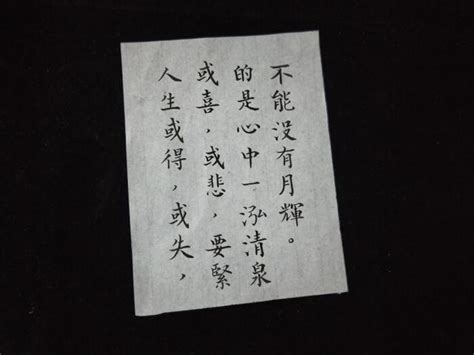 人生或得，或失，
或喜，或悲，要緊
的是心中一泓清泉
不能没有月輝。